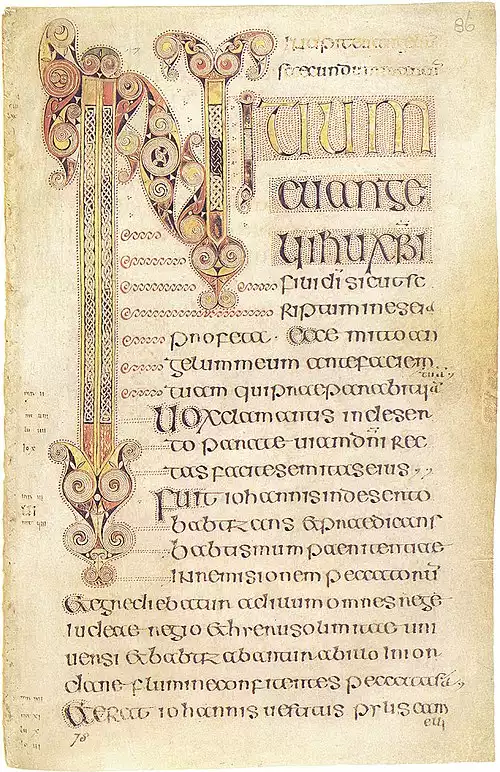 86
INITIUM
euange
lii ihu xpi
filii di sicut sc
riptum in eseia
profeta · ecce mitto an
gelum meum ante faciem
tuam qui praeparabit uiā
tuā
uox clamantis in deser
to parate uiam dn̄i rec
tas facite semitas eius
fuit iohannis in deserto
babtizans & praedicans
babtismum paenitentiae
in remisionem peccatorū
& egrediebatur ad illum omnes rege
iudeae regio & hierusolimitae uni
uersi & babtizabantur ab illo in ior
dane flumine confitentes peccata suā
& erat iohannis uestitus pylis cam
elli
78